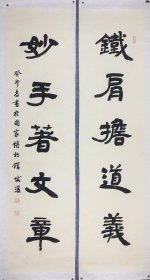 鐵肩擔道義
妙手著文章
癸卯春書於國家博物館